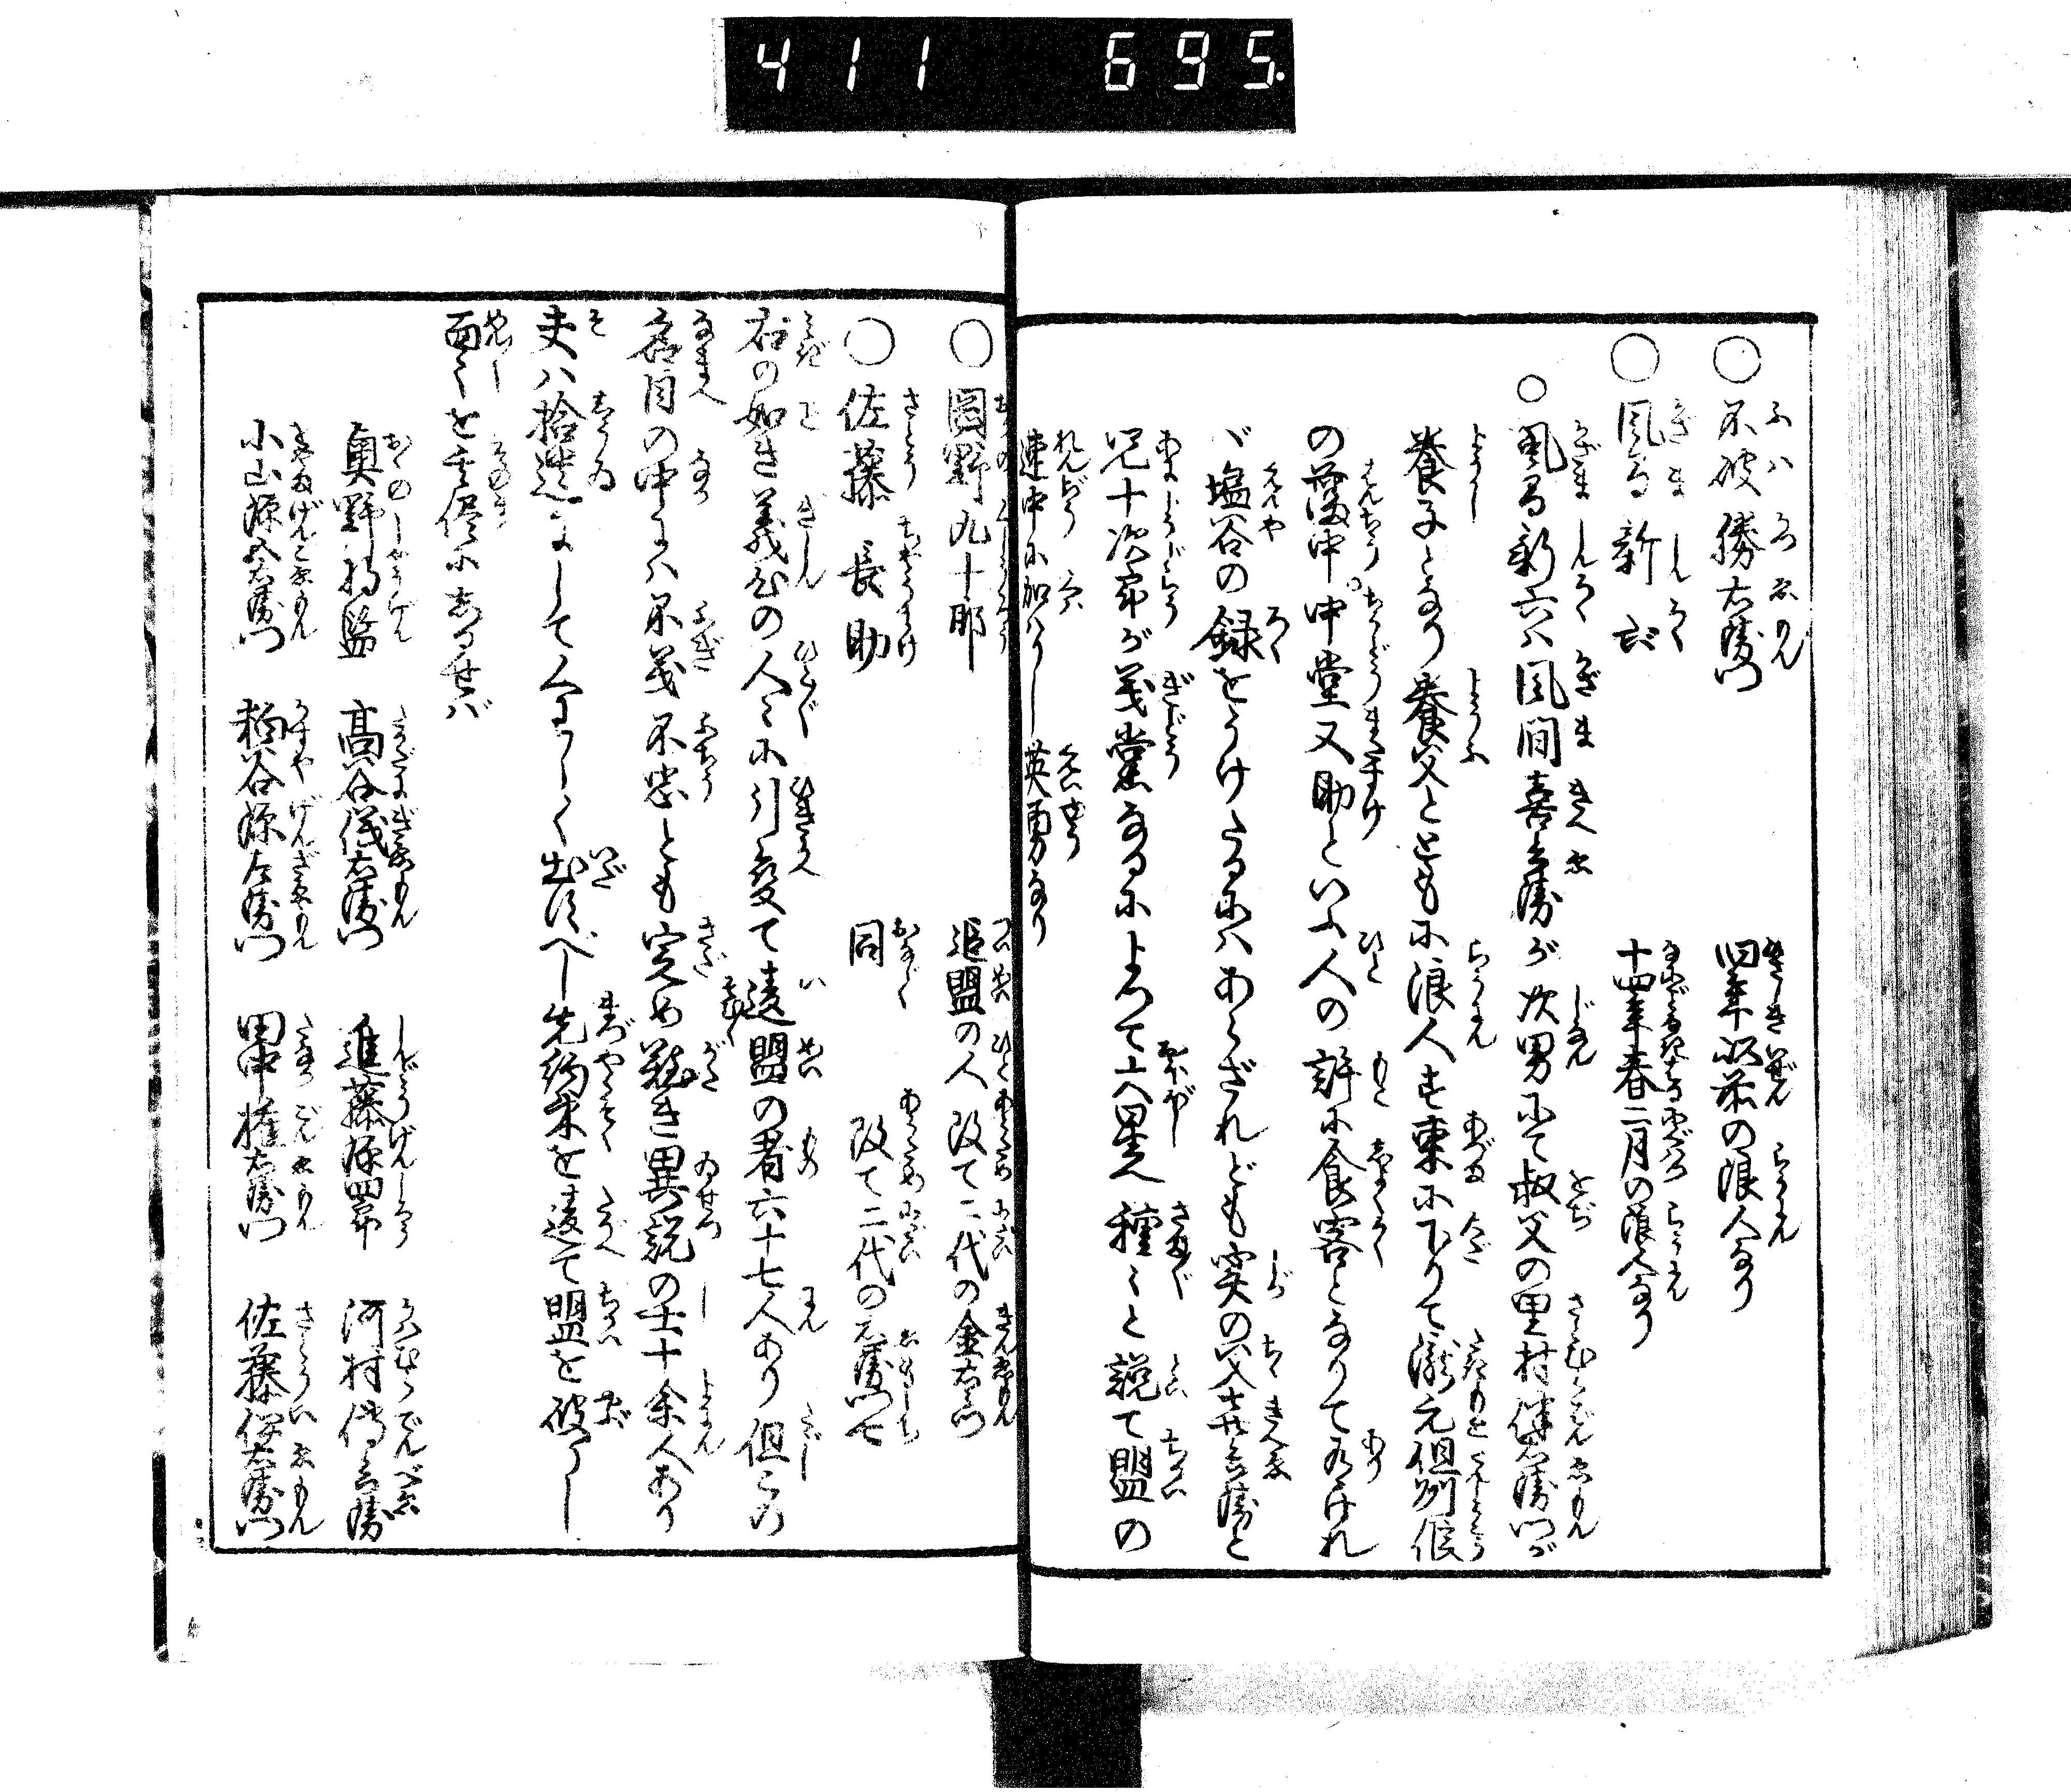 411 695.
○不破勝右衛門 四年以前の浪人なり
○風間新六 十四年春二月の浪人なり
○風間新六ハ風間喜兵衛が次男にて叔父の里村伴右衛門が
養子となり養父とともに浪人し東に下りて瀧元但州侯
の藩中。中堂又助といふ人の許に食客となりて有けれ
バ塩谷の録をうけたるにハあらざれども実の父喜兵衛と
兄十次郎が義党なるによつて大星へ種〻と説て盟の
連中に加ハりし英勇なり
○岡野九十郎 追盟の人 改て二代の金右衛門
○佐藤長助 同 改て二代の
右の如き義心の人〻に引変て違盟の者六十七人あり但この
名目の中にハ不義不忠とも定め難き異説の士十余人あり
夫ハ拾遺にして人わろく出すべし先約束を違て盟を破りし
面〻を其儘にしるせバ
奥野将監 高谷儀右衛門 進藤源四郎 河村傳兵衛
小山源五右衛門 糟谷源左衛門 田中権右衛門 佐藤伊右衛門